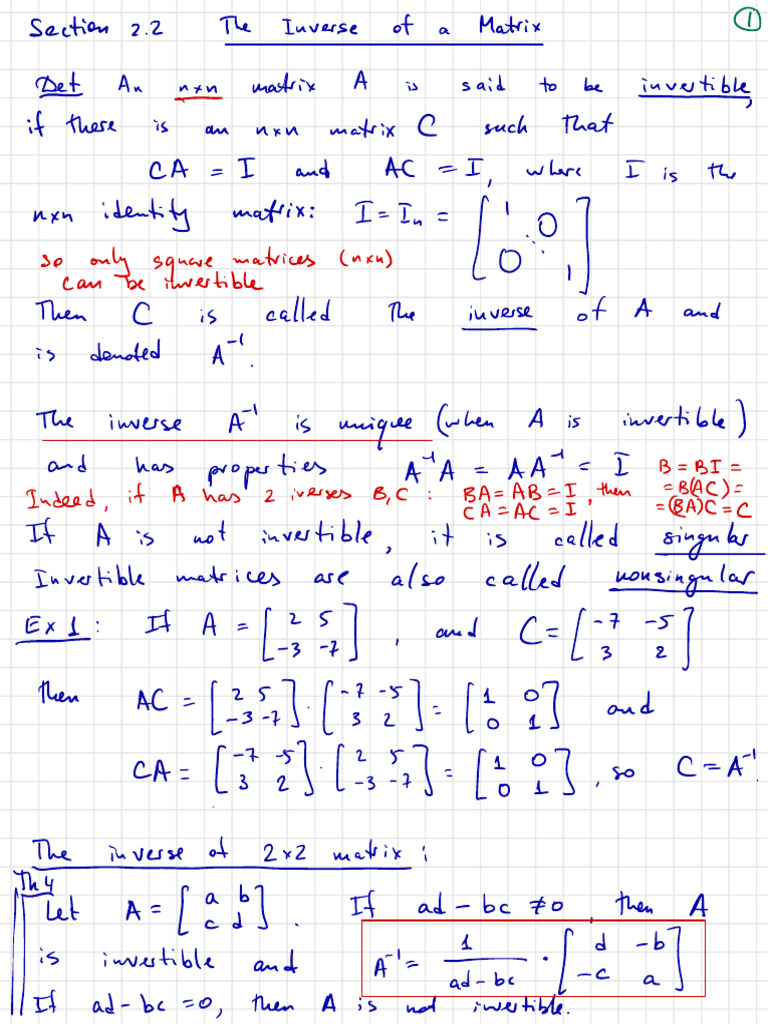 Section 2.2 The Inverse of a Matrix ①
Def An n×n matrix A is said to be invertible,
if there is an n×n matrix C such that
CA = I and AC = I, where I is the
n×n identity matrix: I = Iₙ = [1 0 ⋱ 0 1]
so only square matrices (n×n)
can be invertible
Then C is called the inverse of A and
is denoted A⁻¹.
The inverse A⁻¹ is unique (when A is invertible)
and has properties A⁻¹A = AA⁻¹ = I
Indeed, if A has 2 iverses B,C : BA = AB = I, CA = AC = I, then B = BI = = B(AC) = = (BA)C = C
If A is not invertible, it is called singular
Invertible matrices are also called nonsingular
Ex 1: If A = [2 5; -3 -7], and C = [-7 -5; 3 2]
then AC = [2 5; -3 -7] · [-7 -5; 3 2] = [1 0; 0 1] and
CA = [-7 -5; 3 2] · [2 5; -3 -7] = [1 0; 0 1], so C = A⁻¹.
The inverse of 2×2 matrix:
Th 4
Let A = [a b; c d]. If ad - bc ≠ 0, then A
is invertible and A⁻¹ = 1/(ad - bc) · [d -b; -c a]
If ad - bc = 0, then A is not invertible.